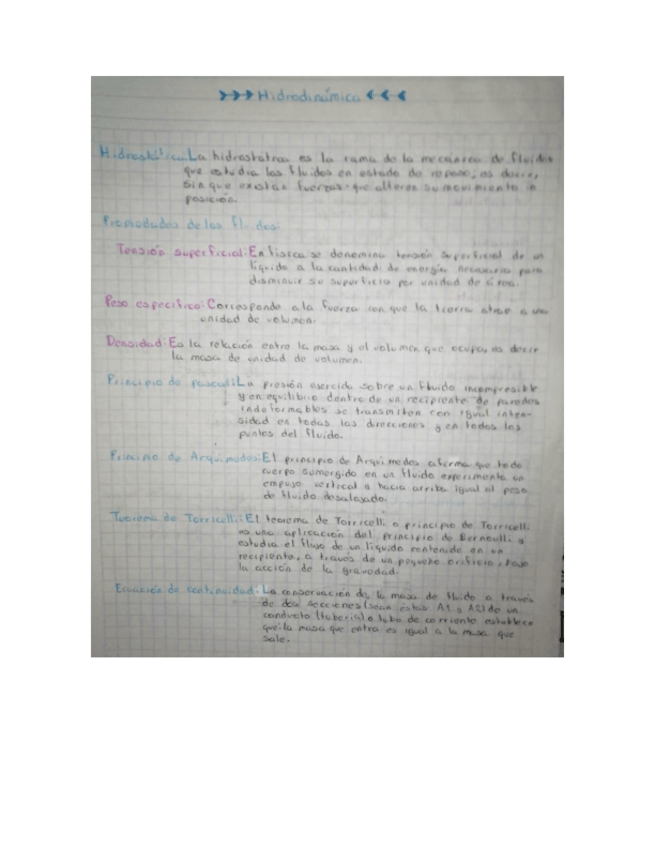 Hidrodinámica
Hidrostática: La hidrostatica es la rama de la mecánica de fluidos
que estudia los fluidos en estado de reposo; es decir,
sin que existan fuerzas que alteren su movimiento o
posición.
Propiedades de los fluidos:
Tensión superficial: En física se denomina tensión superficial de un
líquido a la cantidad de energía necesaria para
disminuir su superficie por unidad de área.
Peso específico: Corresponde a la fuerza con que la tierra atrae a una
unidad de volumen.
Densidad: Es la relación entre la masa y el volumen que ocupa, es decir
la masa de unidad de volumen.
Principio de pascal: La presión ejercida sobre un fluido incompresible
y en equilibrio dentro de un recipiente de paredes
indeformables se transmiten con igual inten-
sidad en todas las direcciones y en todos los
puntos del fluido.
Principio de Arquimedes: El principio de Arquimedes afirma que todo
cuerpo sumergido en un fluido experimenta un
empuje vertical y hacia arriba igual al peso
de fluido desalojado.
Teorema de Torricelli: El teorema de Torricelli o principio de Torricelli
es una aplicación del principio de Bernoulli y
estudia el flujo de un líquido contenido en un
recipiente, a través de un pequeño orificio, bajo
la acción de la gravedad.
Ecuación de continuidad: La conservación de la masa de fluido a través
de dos secciones (sean estas A1 y A2) de un
conducto (tubería) o tubo de corriente establece
que: la masa que entra es igual a la masa que
sale.